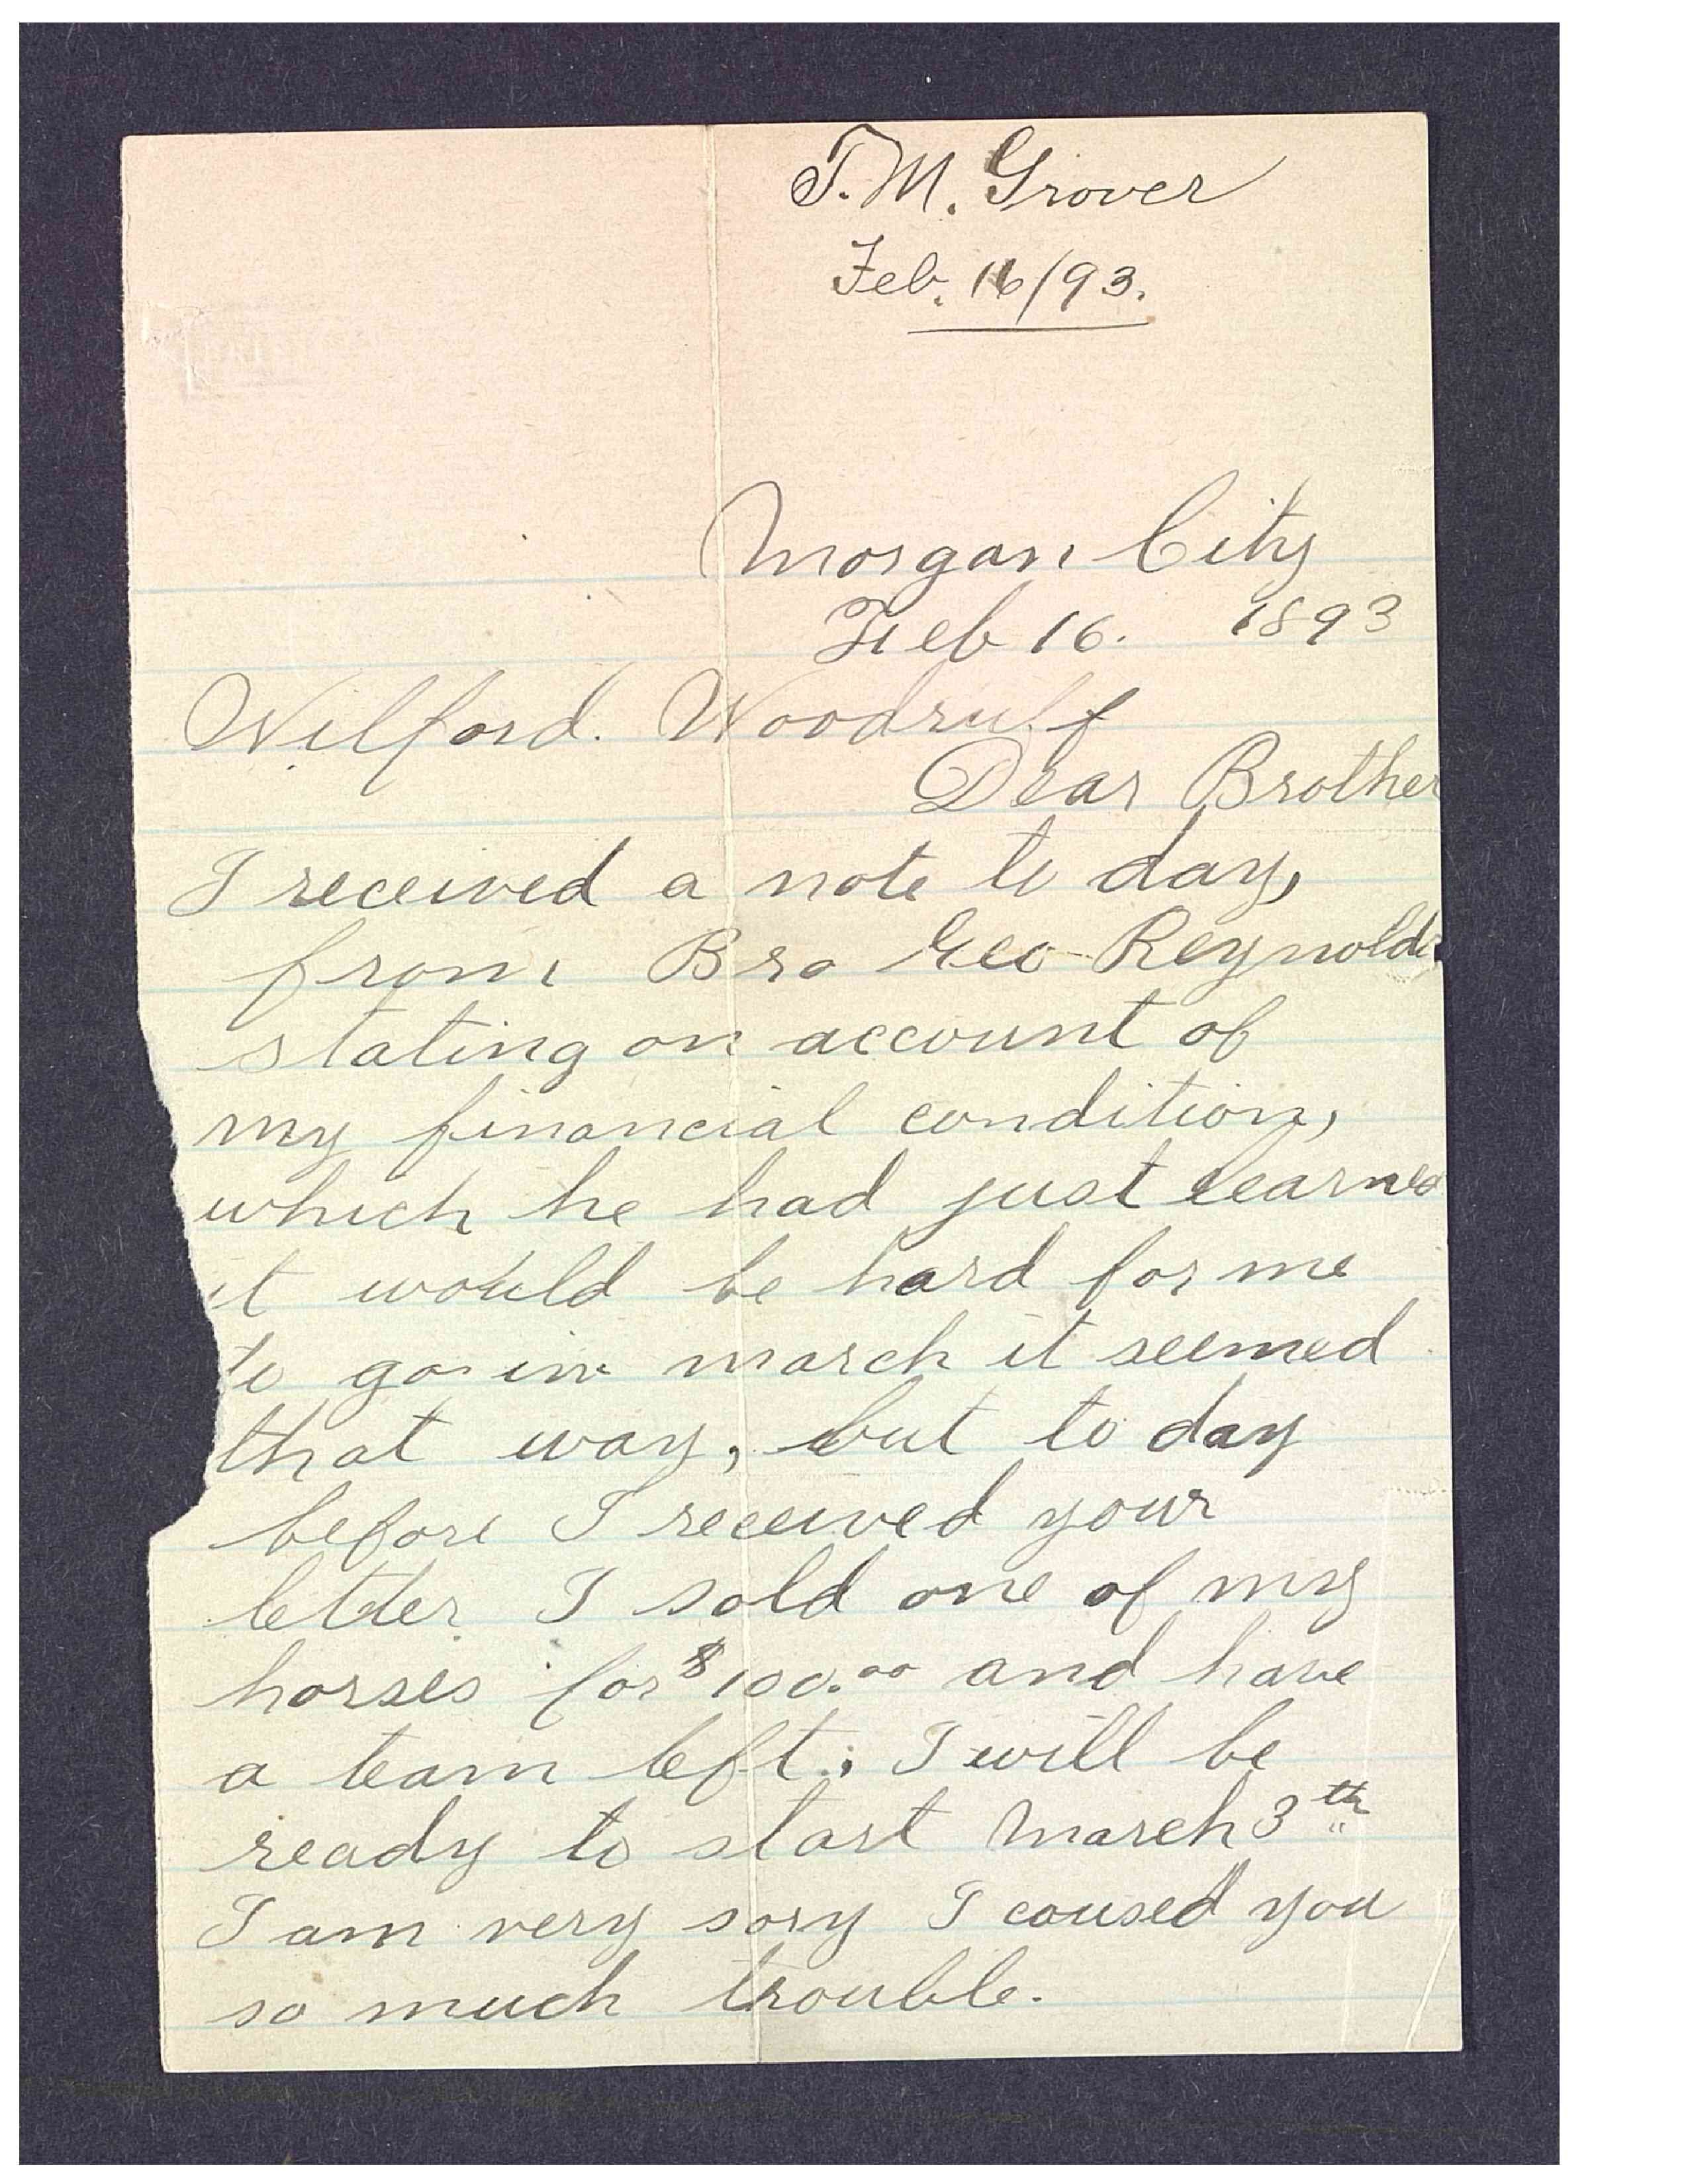 T. M. Grover
Feb. 16/93.
Morgan City
Feb 16. 1893
Wilford. Woodruff
Dear Brother
I received a note to day,
from Bro Geo Reynolds
stating on account of
my financial condition,
which he had just learned
it would be hard for me
to go in march it seemed
that way, but to day
before I received your
letter I sold one of my
horses for $100.00 and have
a team left. I will be
ready to start March 3th
I am very sory I coused you
so much trouble.